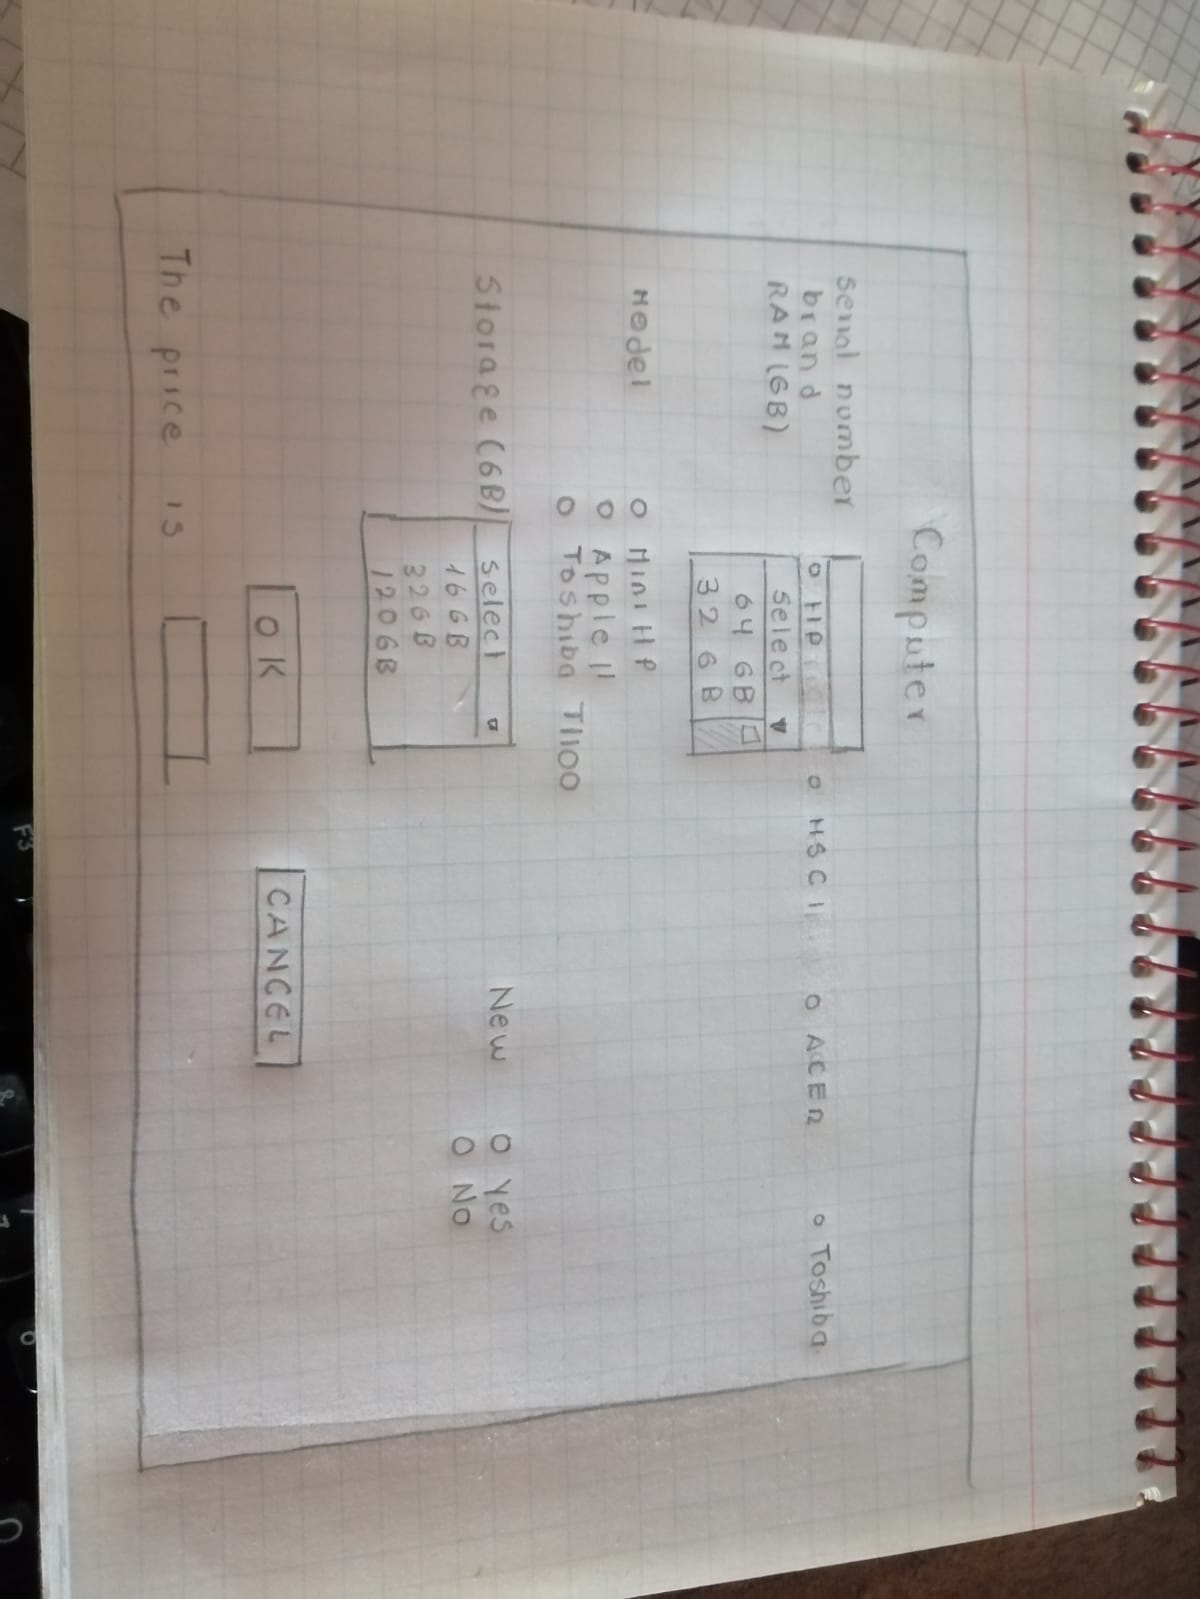 Computer
Serial number
brand o HP o MSCI o ACER o Toshiba
RAM (GB) Select
64 GB
32 GB
Model o Mini HP
o Apple II
o Toshiba T1100
Storage (GB) select New o Yes
16GB o No
32GB
120GB
OK CANCEL
The price is
F3